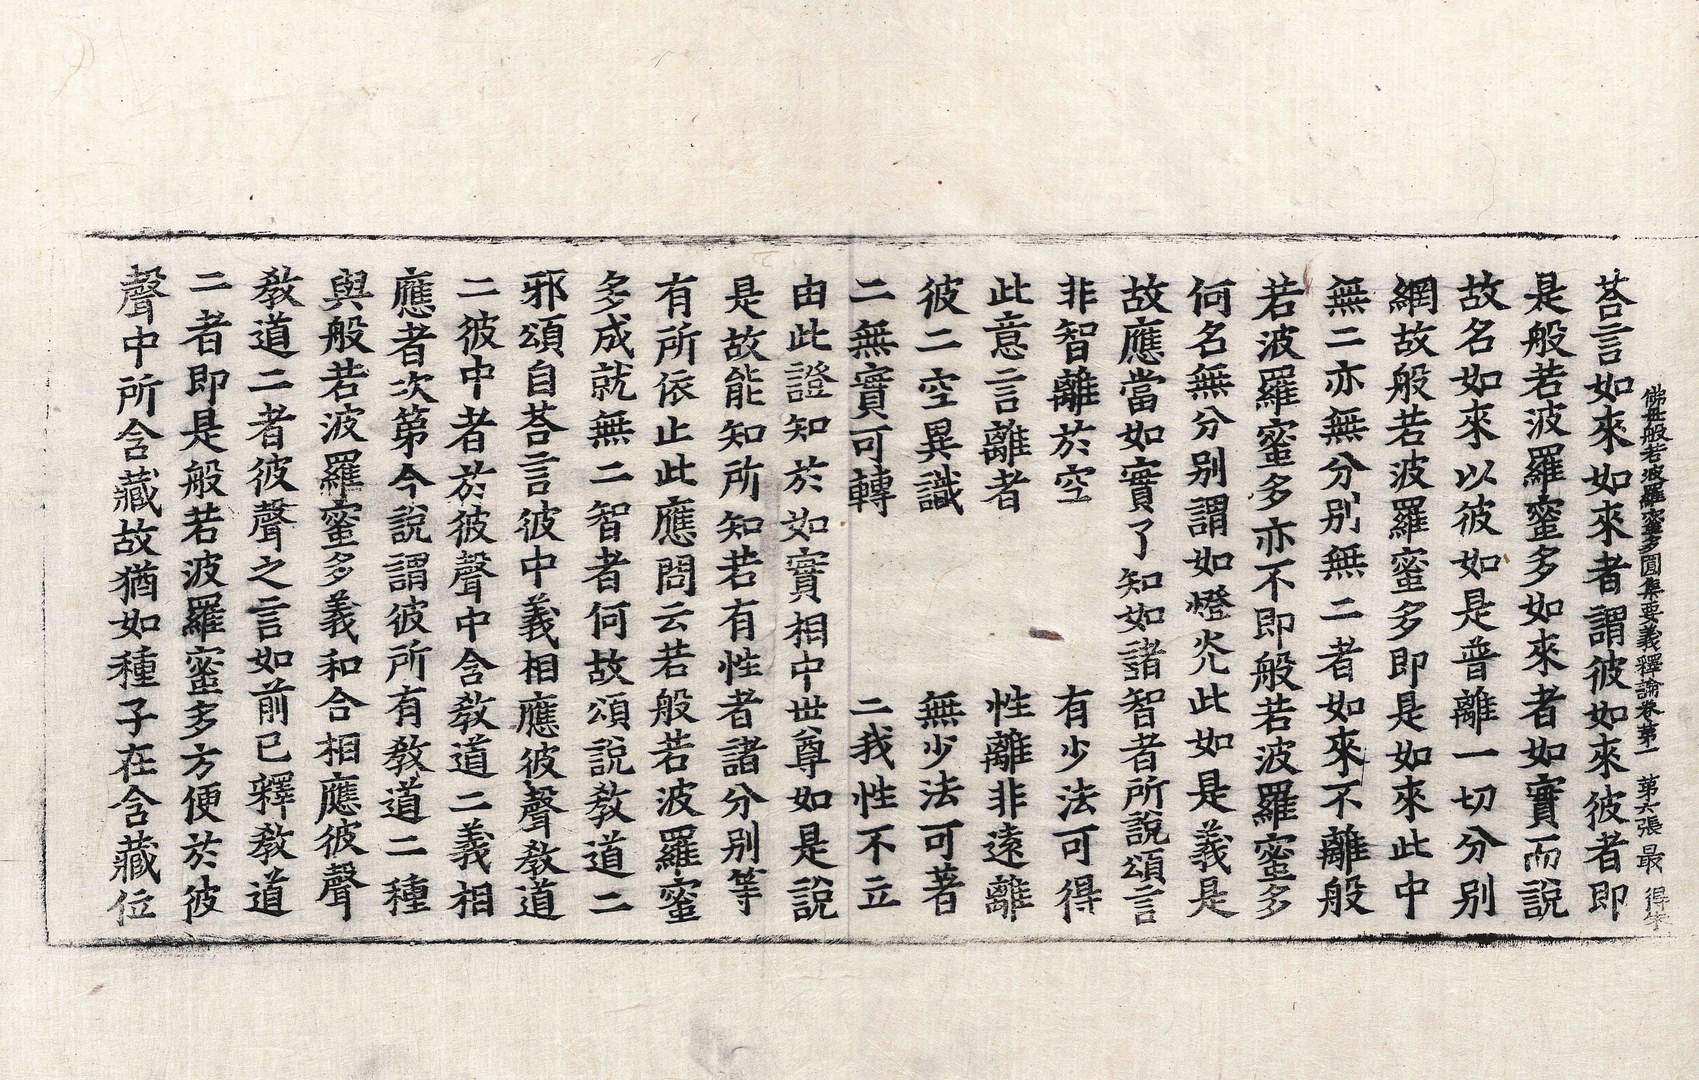 佛母般若波羅蜜多圓集要義釋論卷第一 第六張 最 得宗
荅言如來如來者謂彼如來彼者即
是般若波羅蜜多如來者如實而說
故名如來以彼如是普離一切分別
網故般若波羅蜜多即是如來此中
無二亦無分別無二者如來不離般
若波羅蜜多亦不即般若波羅蜜多
何名無分別謂如燈光此如是義是
故應當如實了知如諸智者所說頌言
非智離於空 有少法可得
此意言離者 性離非遠離
彼二空異識 無少法可著
二無實可轉 二我性不立
由此證知於如實相中世尊如是說
是故能知所知若有性者諸分別等
有所依止此應問云若般若波羅蜜
多成就無二智者何故頌說教道二
邪頌自荅言彼中義相應彼聲教道
二彼中者於彼聲中含教道二義相
應者次第今說謂彼所有教道二種
與般若波羅蜜多義和合相應彼聲
教道二者彼聲之言如前已釋教道
二者即是般若波羅蜜多方便於彼
聲中所含藏故猶如種子在含藏位